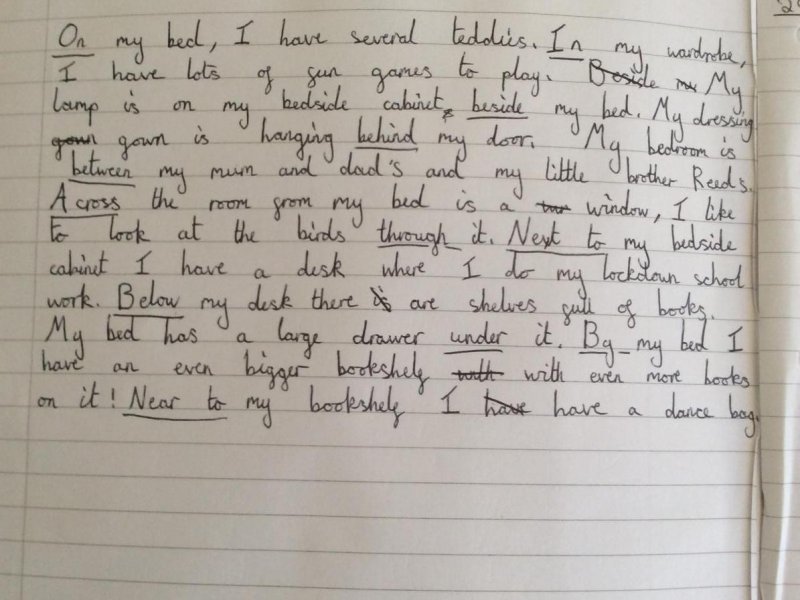 On my bed, I have several teddies. In my wardrobe,
I have lots of fun games to play. Beside my My
lamp is on my bedside cabinet, beside my bed. My dressing
gown gown is hanging behind my door. My bedroom is
between my mum and dad's and my little brother Reed's.
Across the room from my bed is a window, I like
to look at the birds through it. Next to my bedside
cabinet I have a desk where I do my lockdown school
work. Below my desk there is are shelves full of books.
My bed has a large drawer under it. By my bed I
have an even bigger bookshelf with with even more books
on it! Near to my bookshelf I have have a dance bag.